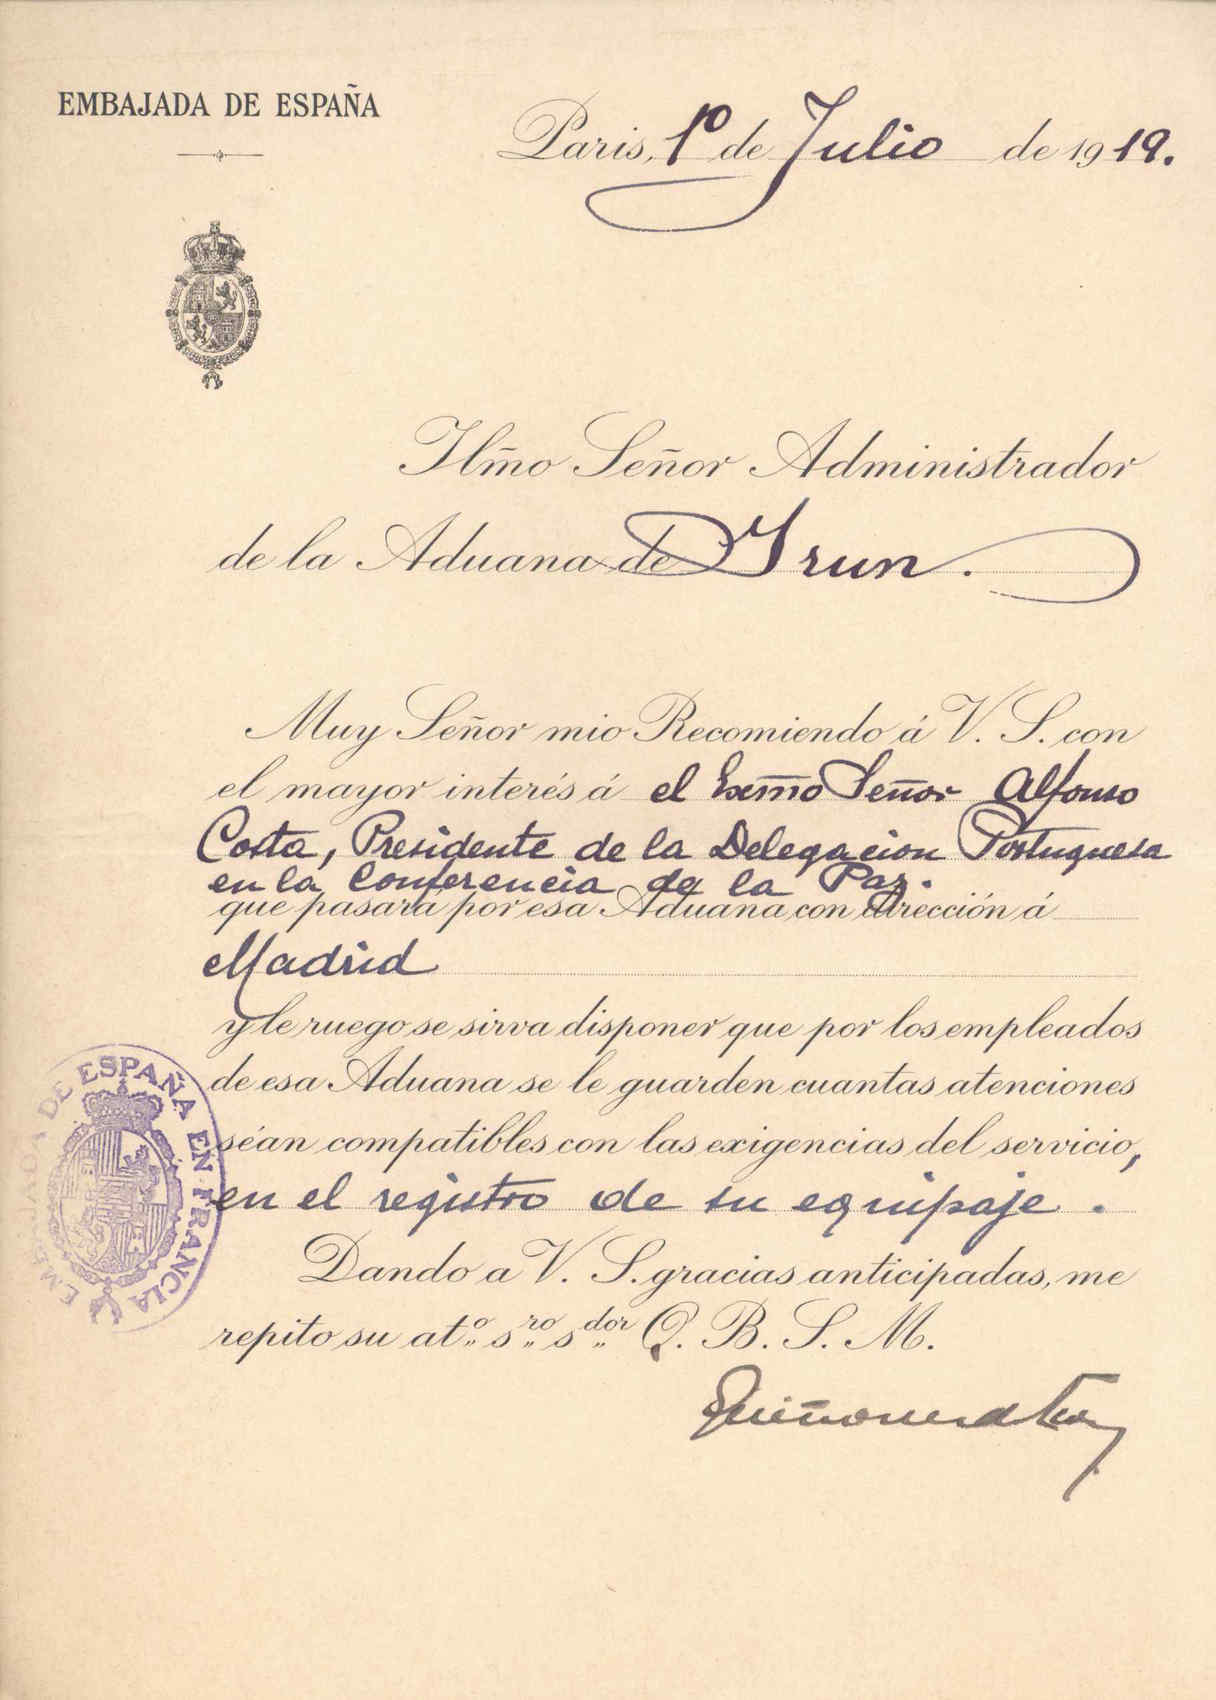 EMBAJADA DE ESPAÑA
Paris, 1º de Julio de 1919.
Ilm̃o Señor Administrador
de la Aduana de Irun.
Muy Señor mio Recomiendo á V. S. con
el mayor interés á el Exm̃o Señor Alfonso
Costa, Presidente de la Delegacion Portuguesa
en la Conferencia de la Paz.
que pasará por esa Aduana con dirección á
Madrid
y le ruego se sirva disponer que por los empleados
de esa Aduana se le guarden cuantas atenciones
séan compatibles con las exigencias del servicio,
en el registro de su equipaje.
Dando a V. S. gracias anticipadas, me
repito su atº sʳº sᵈºʳ Q. B. S. M.
EMBAJADA DE ESPAÑA EN FRANCIA